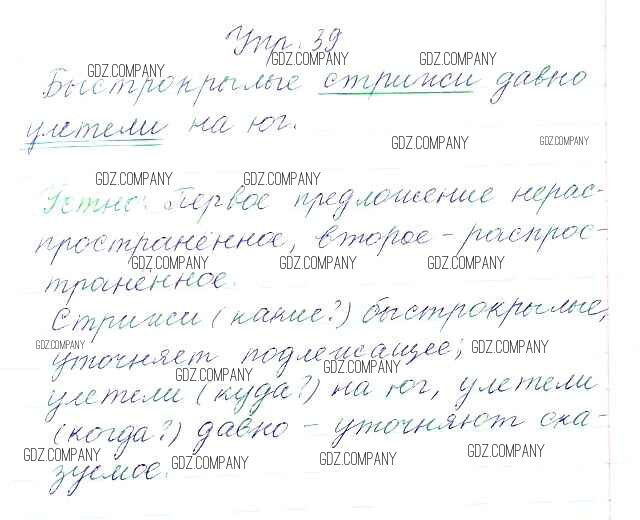 Упр. 39
Быстрокрылые стрижи давно
улетели на юг.
Устно: Первое предложение нерас-
пространённое, второе – распрос-
транённое.
Стрижи (какие?) быстрокрылые,
уточняет подлежащее;
улетели (куда?) на юг, улетели
(когда?) давно – уточняют ска-
зуемое.
GDZ.COMPANY GDZ.COMPANY GDZ.COMPANY
GDZ.COMPANY GDZ.COMPANY
GDZ.COMPANY GDZ.COMPANY
GDZ.COMPANY GDZ.COMPANY GDZ.COMPANY
GDZ.COMPANY GDZ.COMPANY
GDZ.COMPANY GDZ.COMPANY
GDZ.COMPANY GDZ.COMPANY GDZ.COMPANY GDZ.COMPANY